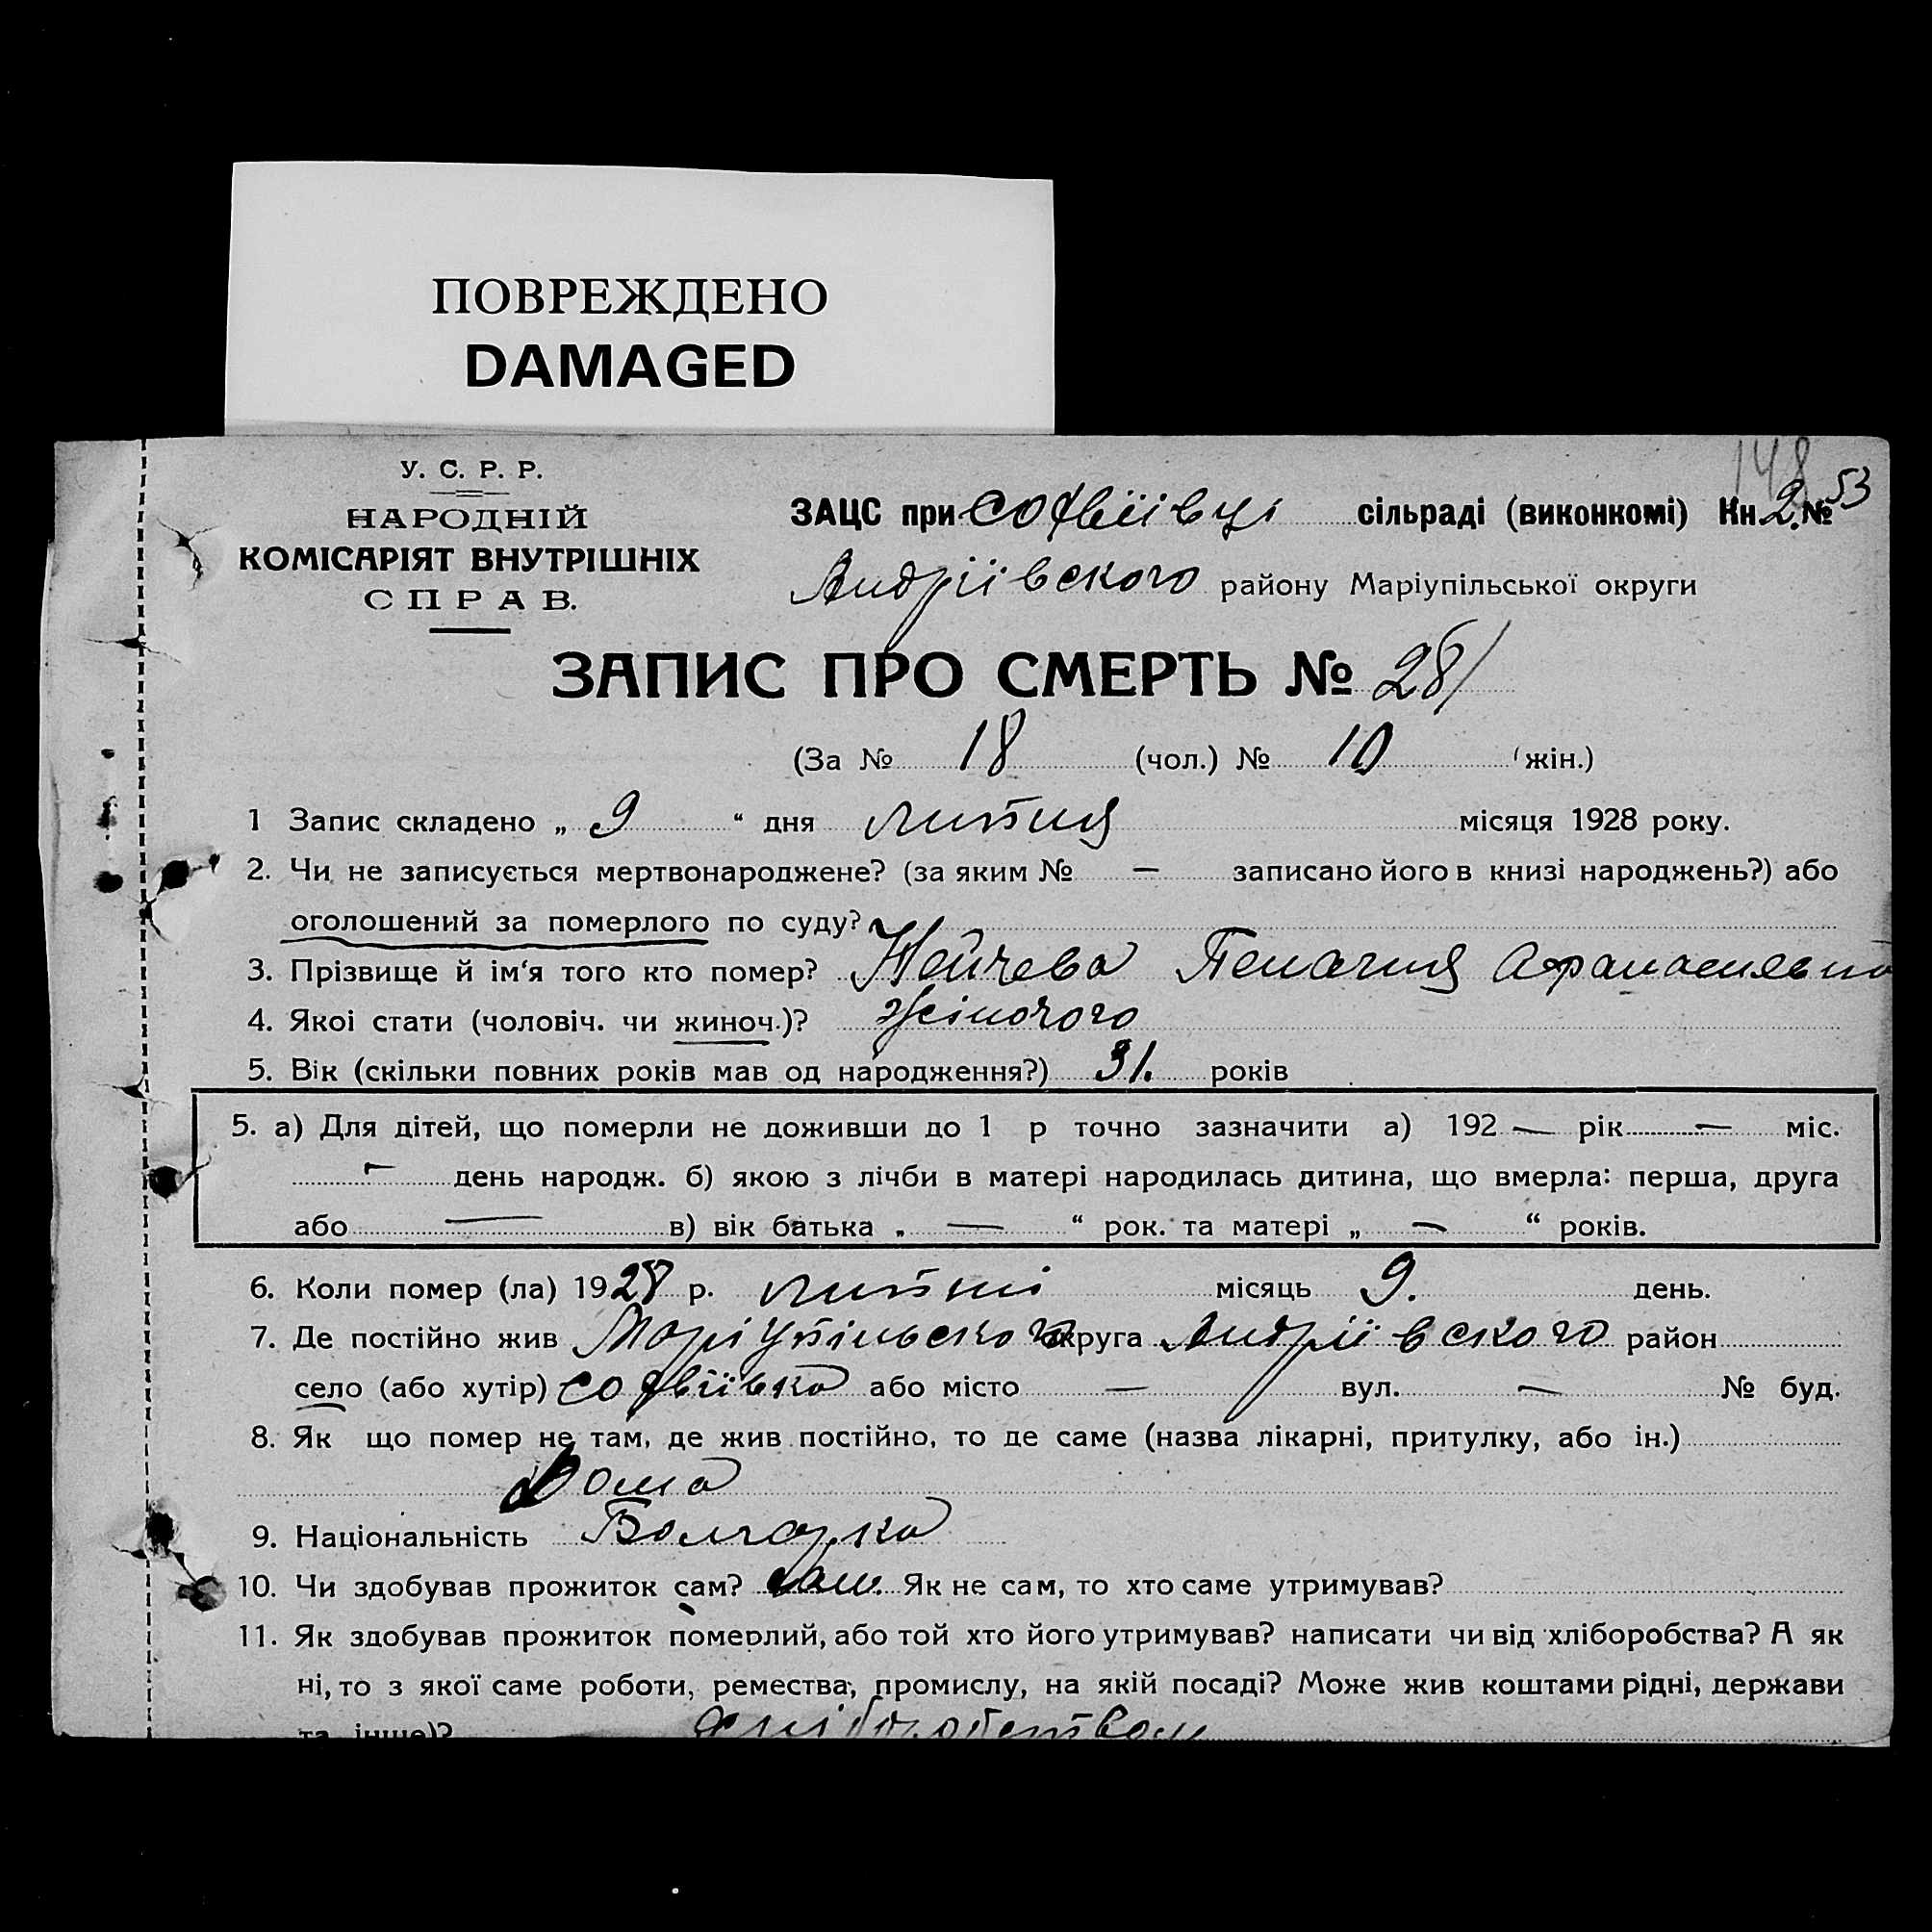 ПОВРЕЖДЕНО
DAMAGED
148
У. С. Р. Р.
НАРОДНІЙ
КОМІСАРІЯТ ВНУТРІШНІХ
СПРАВ.
ЗАЦС при Софіївці сільраді (виконкомі) Кн. 2. № 53
Андріївского району Маріупільської округи
ЗАПИС ПРО СМЕРТЬ № 28
(За № 18 (чол.) № 10 (жін.)
1 Запис складено „ 9 “ дня липня місяця 1928 року.
2. Чи не записується мертвонароджене? (за яким № — записано його в книзі народжень?) або
оголошений за померлого по суду?
3. Прізвище й ім‘я того кто помер? Нейчева Пелагия Афанасиевна
4. Якоі стати (чоловіч. чи жиноч.)? жіночого
5. Вік (скільки повних років мав од народження?) 31. років
5. а) Для дітей, що померли не доживши до 1 р точно зазначити а) 192 — рік — міс.
— день народж. б) якою з лічби в матері народилась дитина, що вмерла: перша, друга
або — в) вік батька „ — “ рок. та матері „ — “ років.
6. Коли помер (ла) 1928 р. липні місяць 9. день.
7. Де постійно жив Маріупільского округа Андріївского район
село (або хутір) Софіївка або місто — вул. — № буд.
8. Як що помер не там, де жив постійно, то де саме (назва лікарні, притулку, або ін.)
Дома
9. Національність Болгарка
10. Чи здобував прожиток сам? сам. Як не сам, то хто саме утримував?
11. Як здобував прожиток померлий, або той хто його утримував? написати чи від хліборобства? А як
ні, то з якої саме роботи, ремества, промислу, на якій посаді? Може жив коштами рідні, держави
та інше)? хліборобством